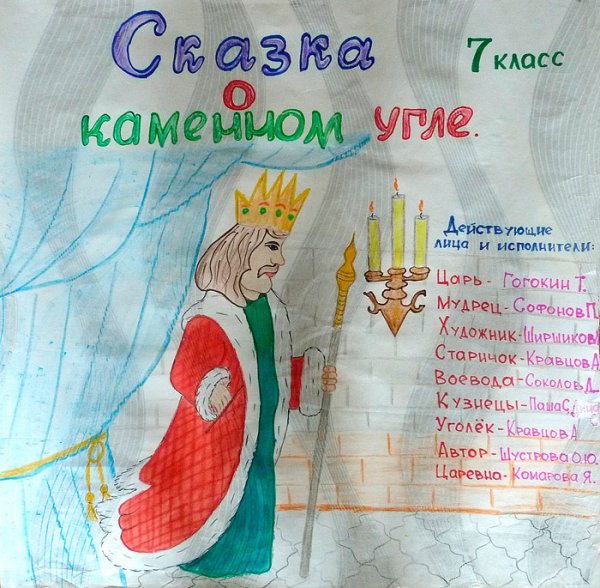 Сказка
7 класс
о
каменном угле.
Действующие
лица и исполнители:
Царь - Гогокин Т.
Мудрец - Софонов П.
Художник - Ширшиков
Старичок - Кравцов А
Воевода - Соколов Д.
Кузнецы - Паша С.
Уголёк - Кравцов А
Автор - Шустрова О.Ю.
Царевна - Комарова Я.